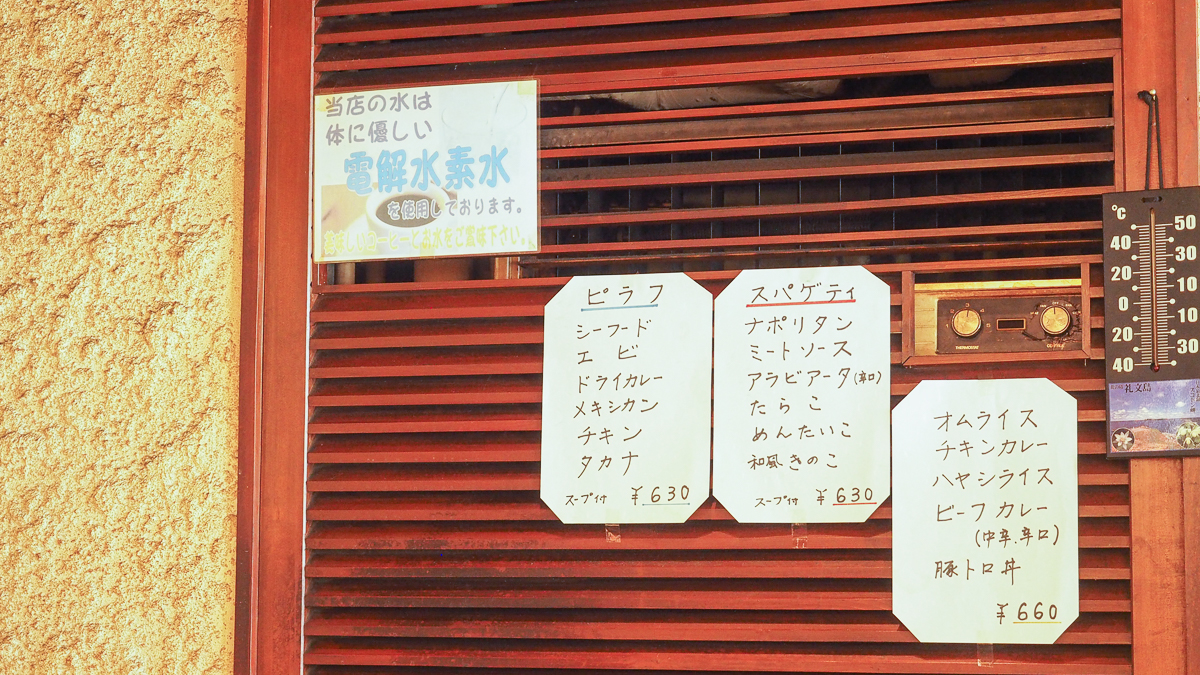 当店の水は
体に優しい
電解水素水
を使用しております。
美味しいコーヒーとお水をご賞味下さい。
ピラフ
シーフード
エビ
ドライカレー
メキシカン
チキン
タカナ
スープ付 ¥630
スパゲティ
ナポリタン
ミートソース
アラビアータ(辛口)
たらこ
めんたいこ
和風きのこ
スープ付 ¥630
オムライス
チキンカレー
ハヤシライス
ビーフカレー
(中辛.辛口)
豚トロ丼
¥660
℃
50
40
30
20
10
0
10
20
30
40
礼文島